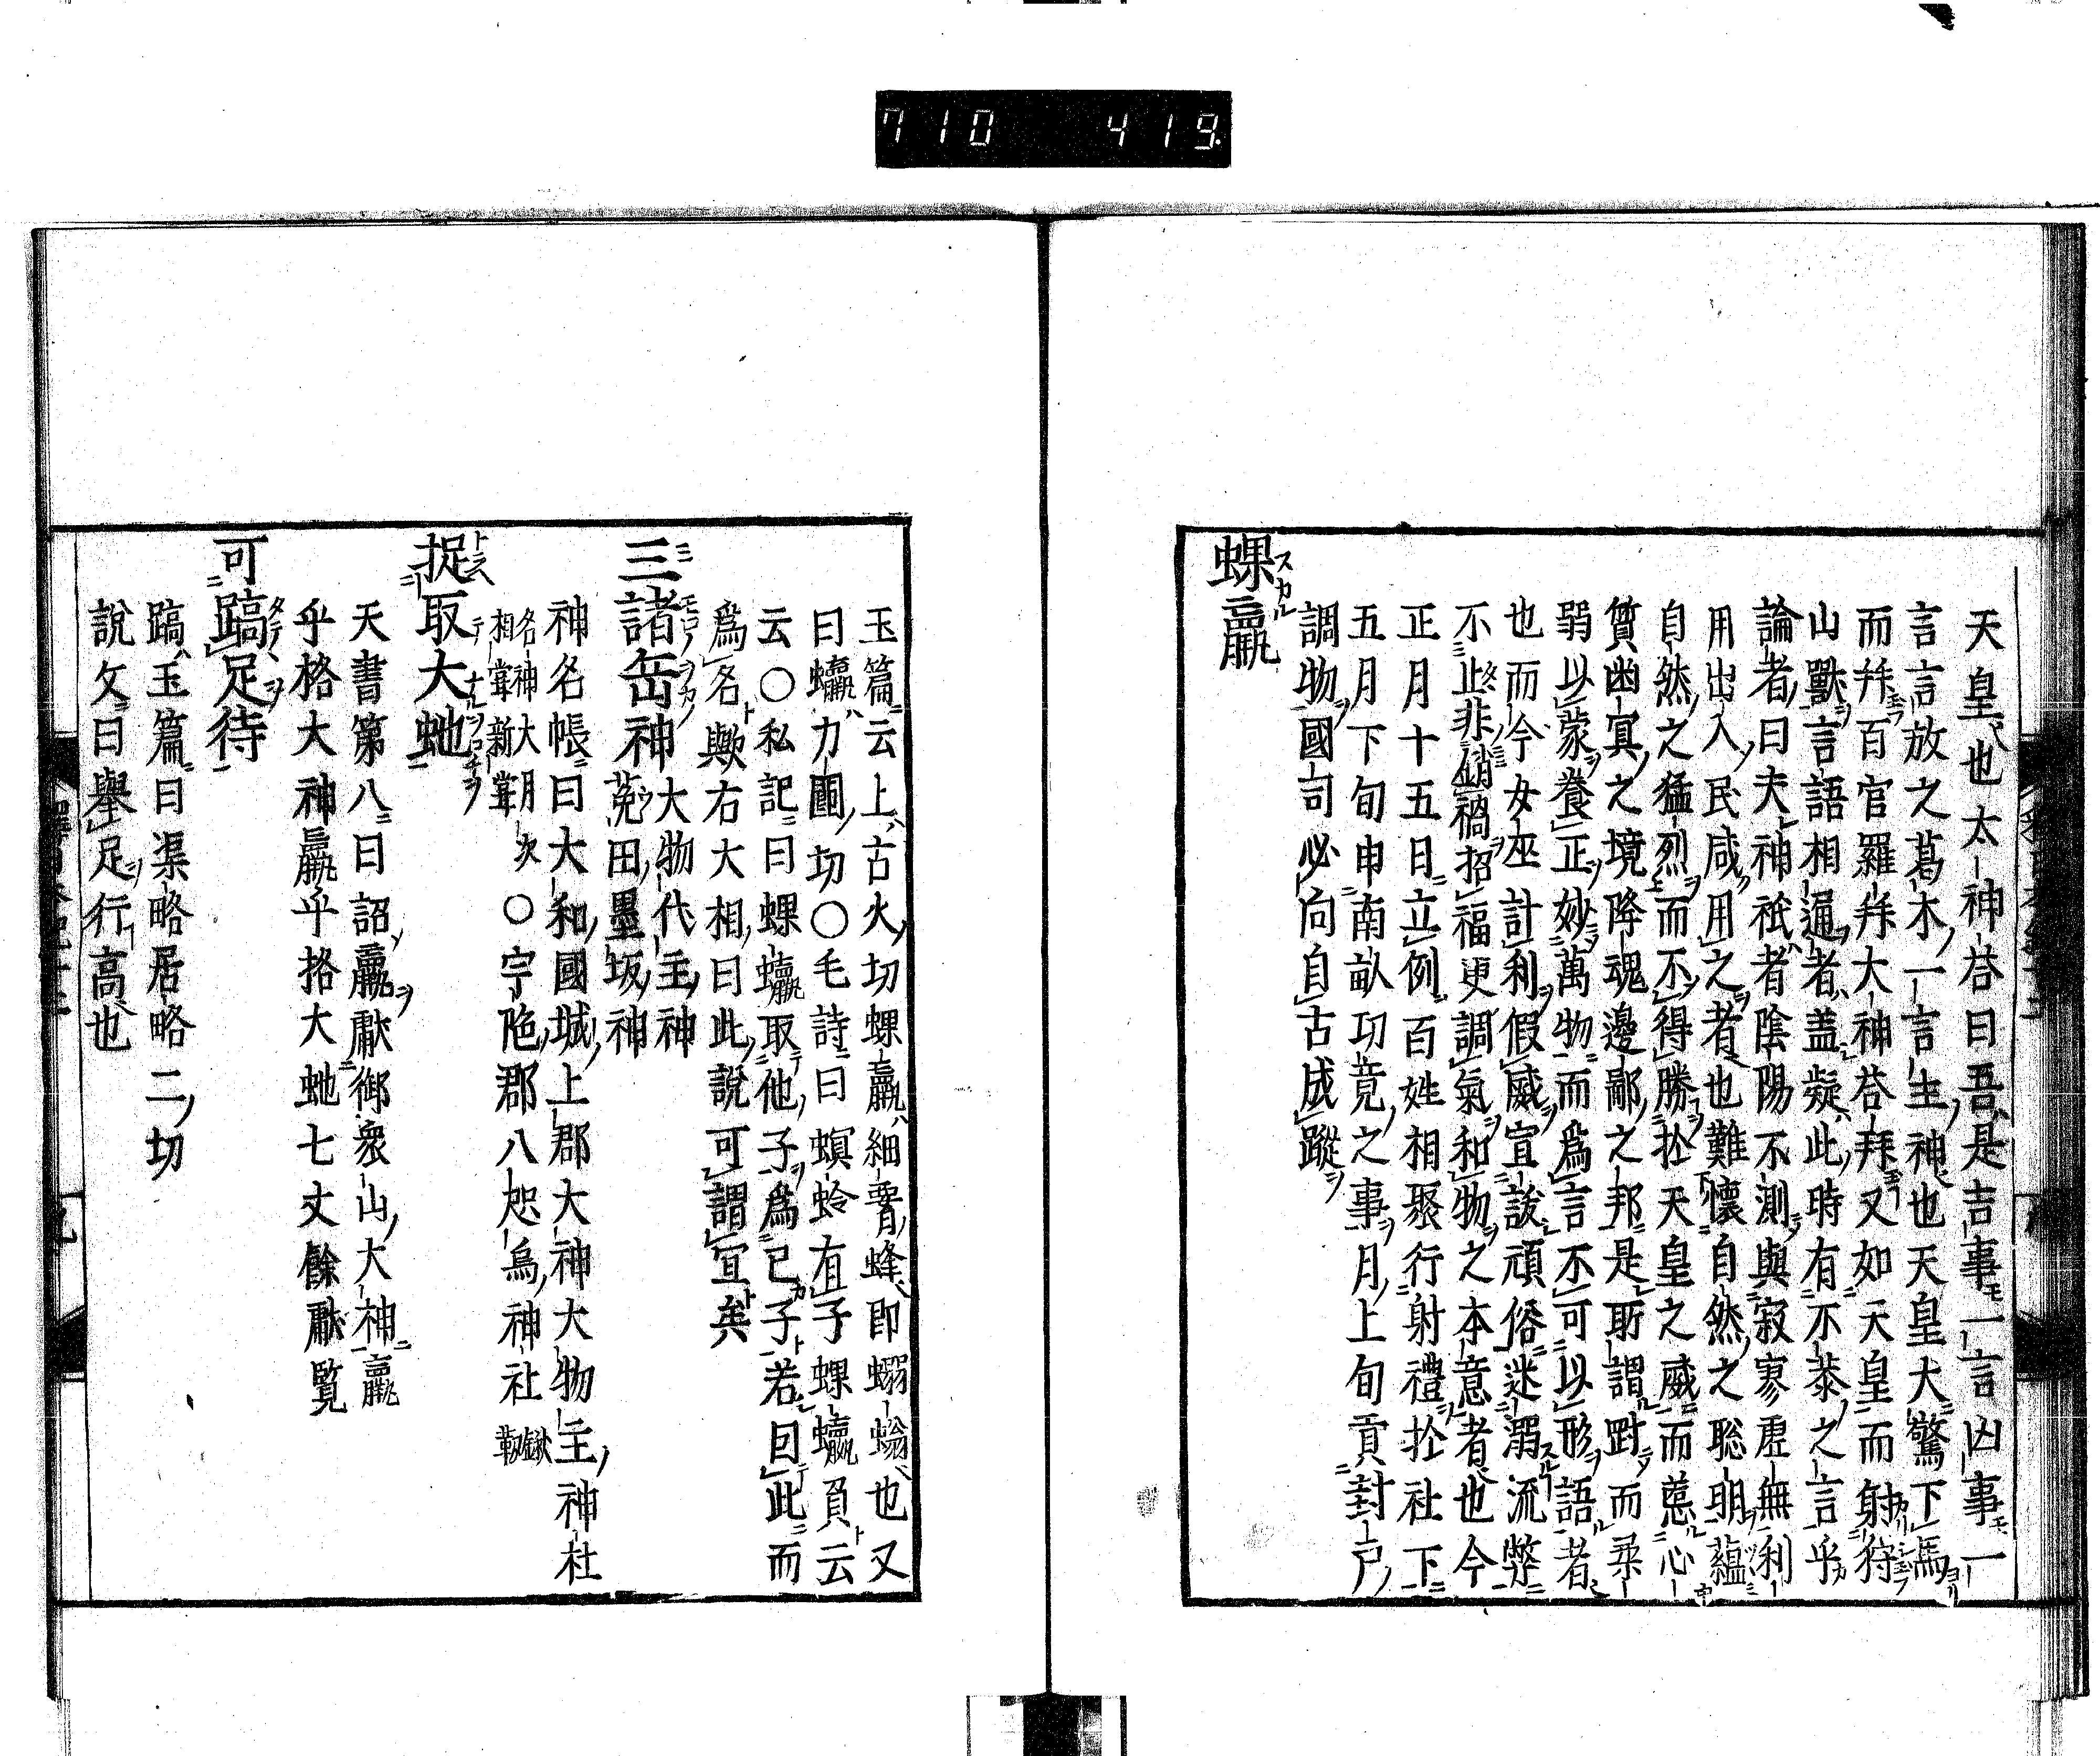 710 419
天皇也太神荅曰吾是吉事一言凶事一
言言放之葛木一言主神也天皇大驚下馬
而拜百官羅拜大神荅拜又如天皇而射狩
山獸言語相通者盖疑此時有不恭之言乎
論者曰夫神祇者陰陽不測與寂寥虚無利
用出入民咸用之者也難懷自然之聡明蘊
自然之猛烈而不得勝扵天皇之威而蒠心
質幽冥之境降魂邊鄙之邦是聊謂對而
弱以蒙養正妙萬物而爲言不可以形語者
也而今女巫計利假威宣說頑俗迷溺流弊
不止非銷禍招福更調氣和物之本意者也今
正月十五日立例百姓相聚行射禮扵社下
五月下旬申南畝功竟之事月上旬貢封戸
調物國司必向自古成蹤
蜾蠃スカル
玉篇云上古火切蜾蠃細腰蜂即蠮螉也又
曰蠃力圖切〇毛詩曰螟蛉有子蜾蠃負云
云〇私記曰蜾蠃取他子爲已子若因此而
爲名歟右大相曰此說可謂宜矣
三諸岳神大物代主神
菟田墨坂神
神名帳曰大和國城上郡大神大物主神社
名神大月次
相甞新甞
〇宇陁郡八咫烏神社鍬靱
捉取大虵
天書第八曰詔蠃獻御衆山大神蠃
乎格大神蠃乎挌大虵七丈餘獻覧
可蹻足待
蹻玉篇曰渠略居略二切
說文曰舉足行高也